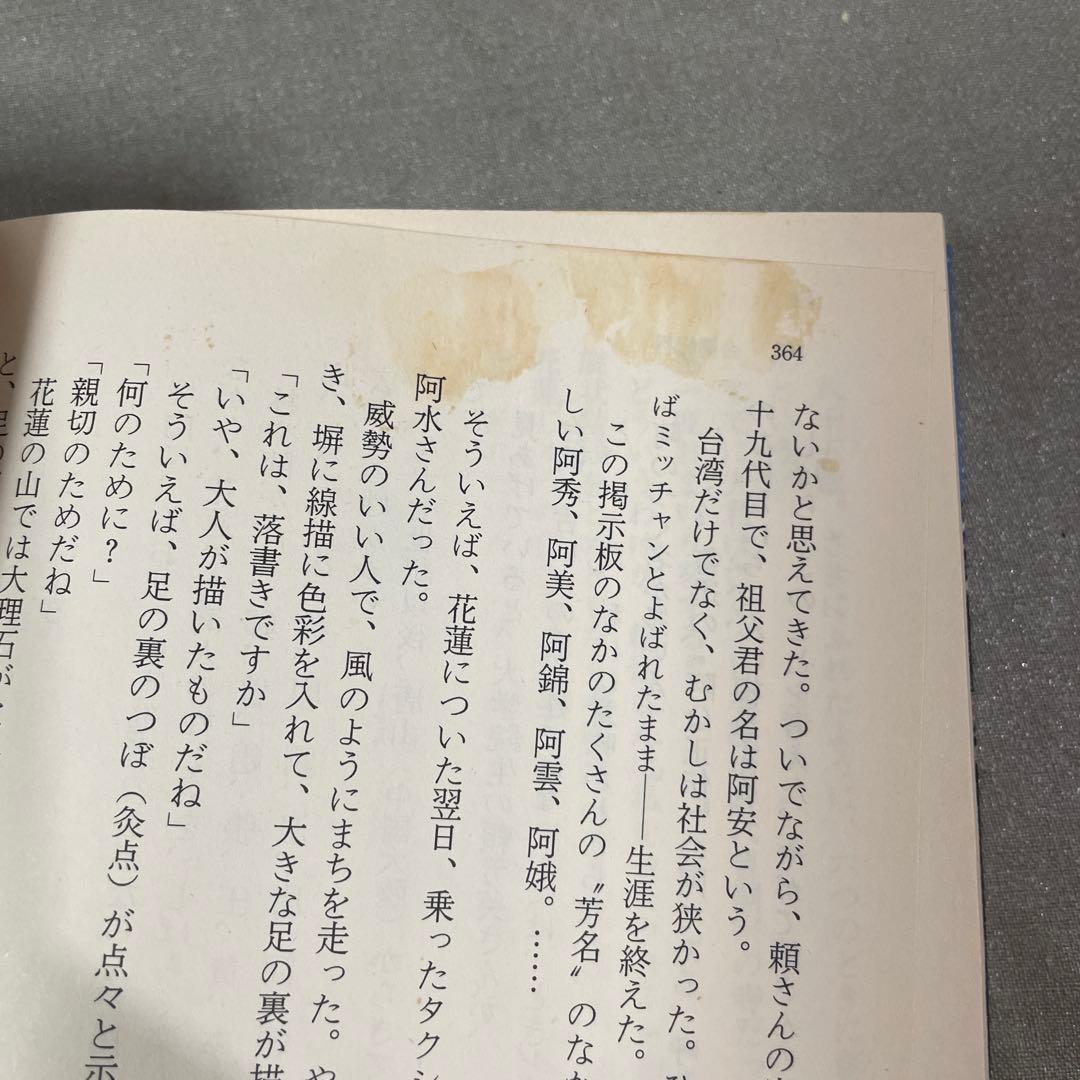 364
ないかと思えてきた。ついでながら、頼さんの
十九代目で、祖父君の名は阿安という。
台湾だけでなく、むかしは社会が狭かった。ひ
ばミッチャンとよばれたまま――生涯を終えた。
この掲示板のなかのたくさんの〝芳名〟のなか
しい阿秀、阿美、阿錦、阿雲、阿娥。……
そういえば、花蓮についた翌日、乗ったタクシ
阿水さんだった。
威勢のいい人で、風のようにまちを走った。や
き、塀に線描に色彩を入れて、大きな足の裏が描
「これは、落書きですか」
「いや、大人が描いたものだね」
そういえば、足の裏のつぼ（灸点）が点々と示
「何のために？」
「親切のためだね」
花蓮の山では大理石が
と、足の